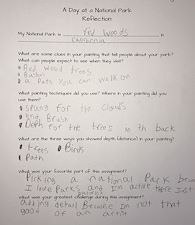 A Day at a National Park
Reflection
My National Park is Red Woods in
California
What are some clues in your painting that tell people about your park?
What can people expect to see when they visit?
• Red wood trees
• Bushes
• a Path you can walk on
What painting techniques did you use? Where in your painting did you
use them?
• spung for the clouds
• Brush
• Depth for the trees in th back
What are the three ways you showed depth (distance) in your painting?
• trees • Birds
• Path
What was your favorite part of the assignment?
Picking a national Park
I love Parks and I'm
What was your greatest challenge during this assignment?
adding detail Because I'm not that
good of an artist